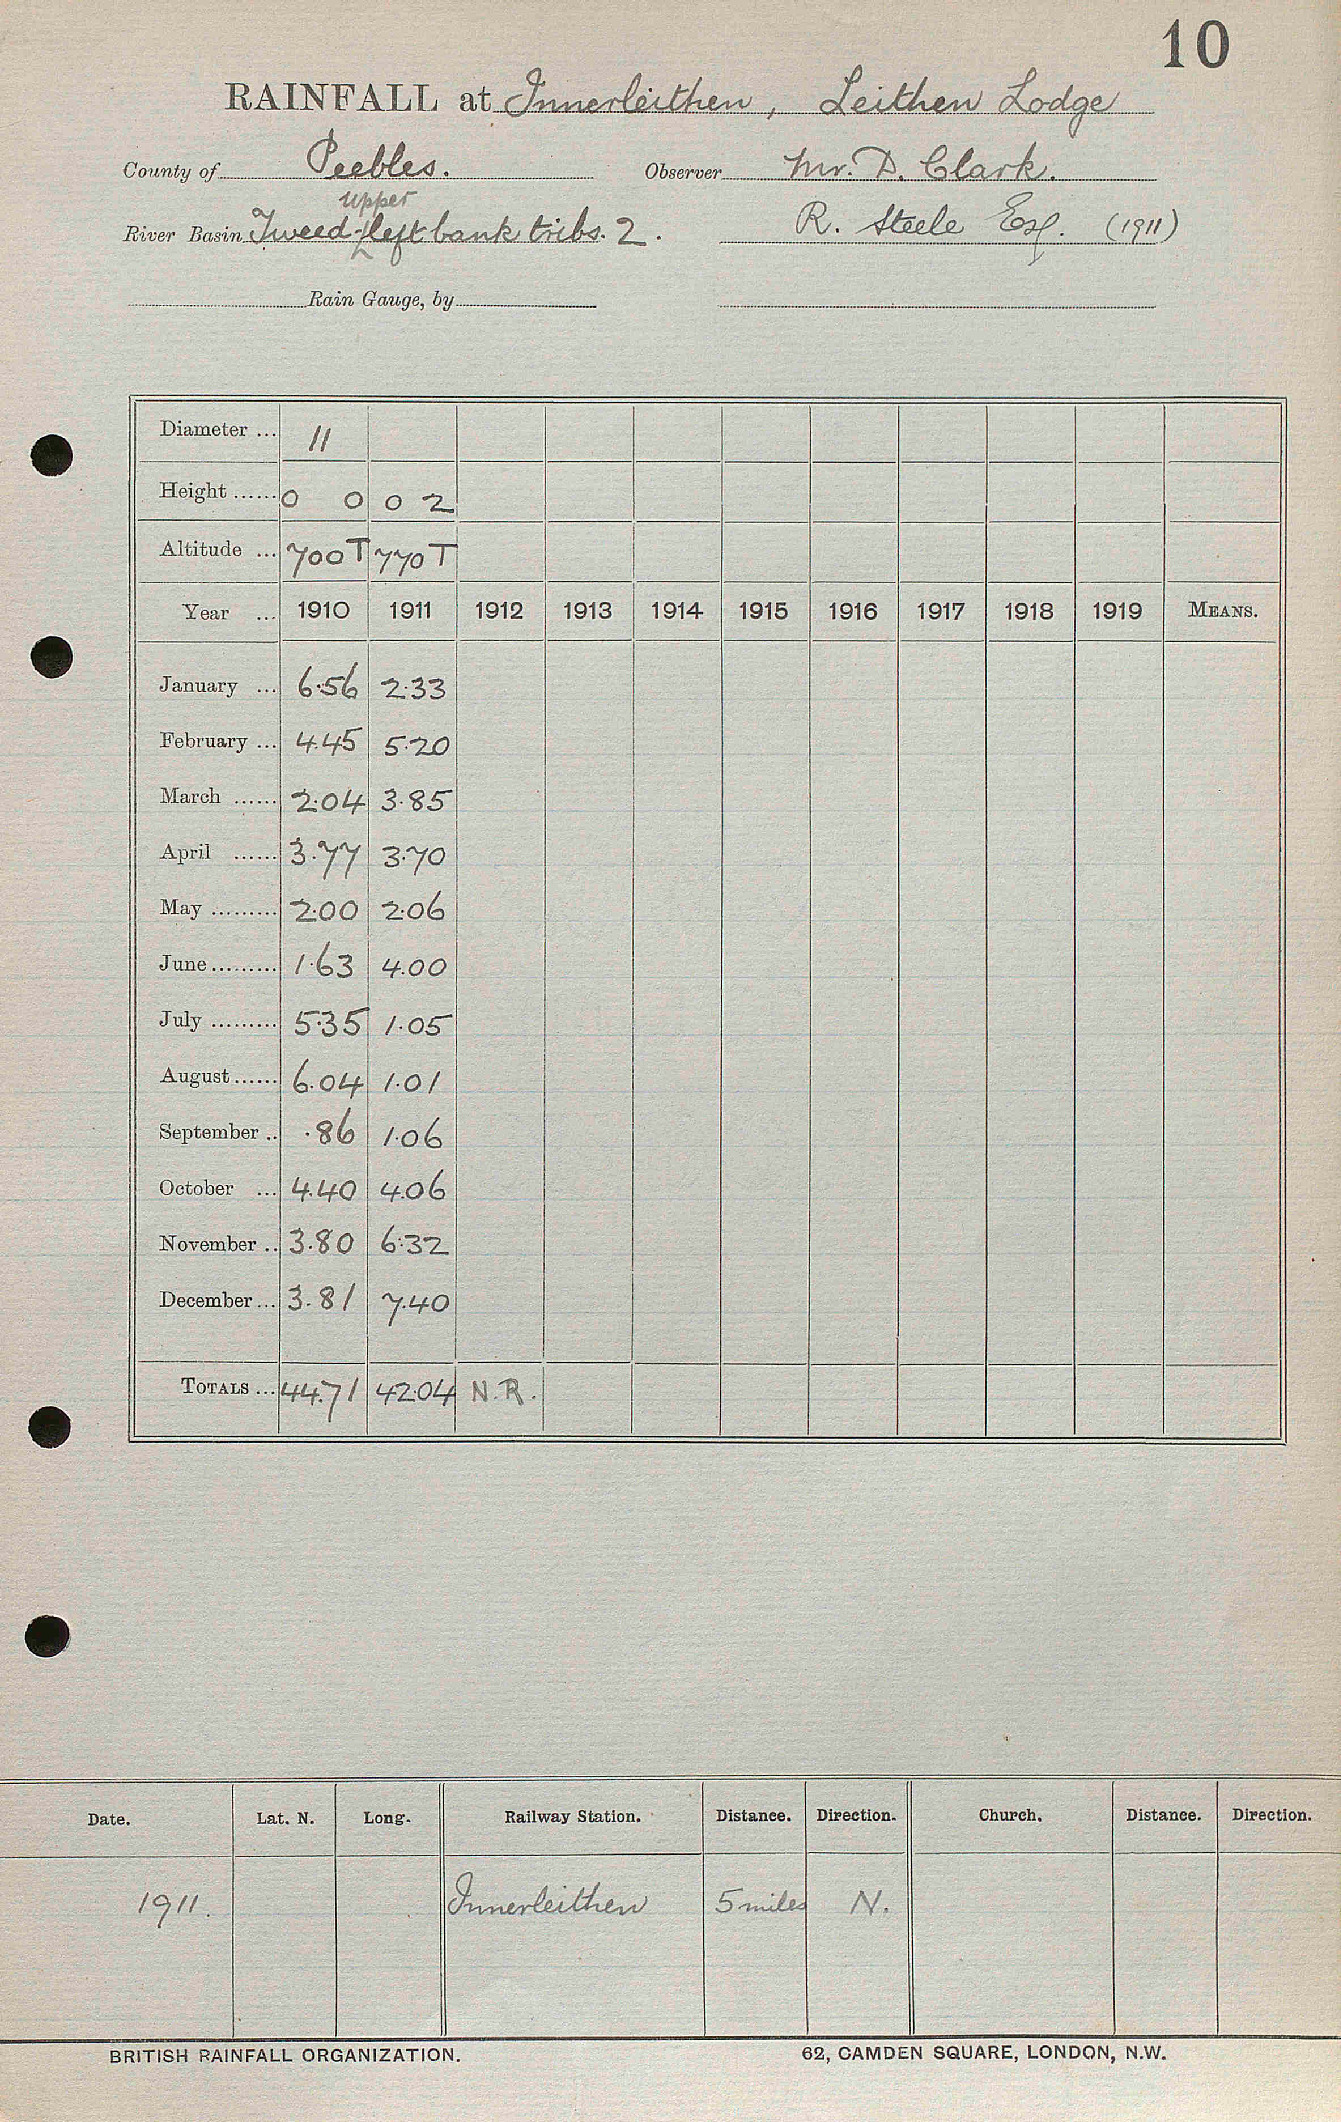 10
RAINFALL at Innerleithen, Leithen Lodge
County of Peebles. Observer Mr. D. Clark.
upper
River Basin Tweed-left bank tribs. 2. R. Steele Esq. (1911)
Rain Gauge, by
Diameter ... 11
Height ...... 0 0 0 2
Altitude ... 700T 770T
Year ... 1910 1911 1912 1913 1914 1915 1916 1917 1918 1919 MEANS.
January ... 6.56 2.33
February ... 4.45 5.20
March ...... 2.04 3.85
April ...... 3.77 3.70
May ......... 2.00 2.06
June ......... 1.63 4.00
July ......... 5.35 1.05
August ...... 6.04 1.01
September .. .86 1.06
October ... 4.40 4.06
November .. 3.80 6.32
December ... 3.81 7.40
TOTALS ... 44.71 42.04 N.R.
Date. Lat. N. Long. Railway Station. Distance. Direction. Church. Distance. Direction.
1911. Innerleithen 5 miles N.
BRITISH RAINFALL ORGANIZATION. 62, CAMDEN SQUARE, LONDON, N.W.